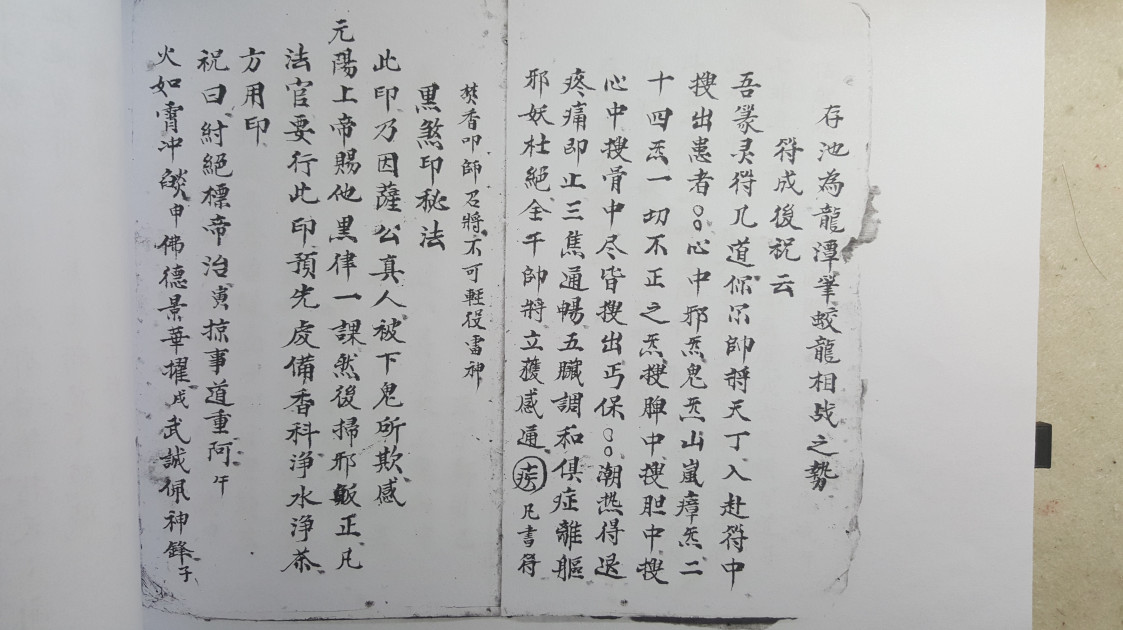 存池為龍潭筆蛟龍相战之勢
符成後祝云
吾篆灵符几道仰示帥將天丁入赴符中
搜出患者〇〇心中邪炁鬼炁山嵐瘴炁二
十四炁一切不正之炁搜脾中搜胆中搜
心中搜骨中尽皆搜出丐保〇〇潮热得退
疼痛即止三焦通暢五臟調和俱症離軀
邪妖杜絕全千帥將立獲感通疾凡書符
焚香叩師召將不可輕役雷神
黑煞印秘法
此印乃因薩公真人被下鬼所欺感
元陽上帝賜他黑律一課然後掃邪皈正凡
法官要行此印預先虔備香科淨水淨茶
方用印
祝曰紂絕標帝治寅掠事道重阿午
火如霄冲燄申佛德景華擢戌武誠佩神鋒子